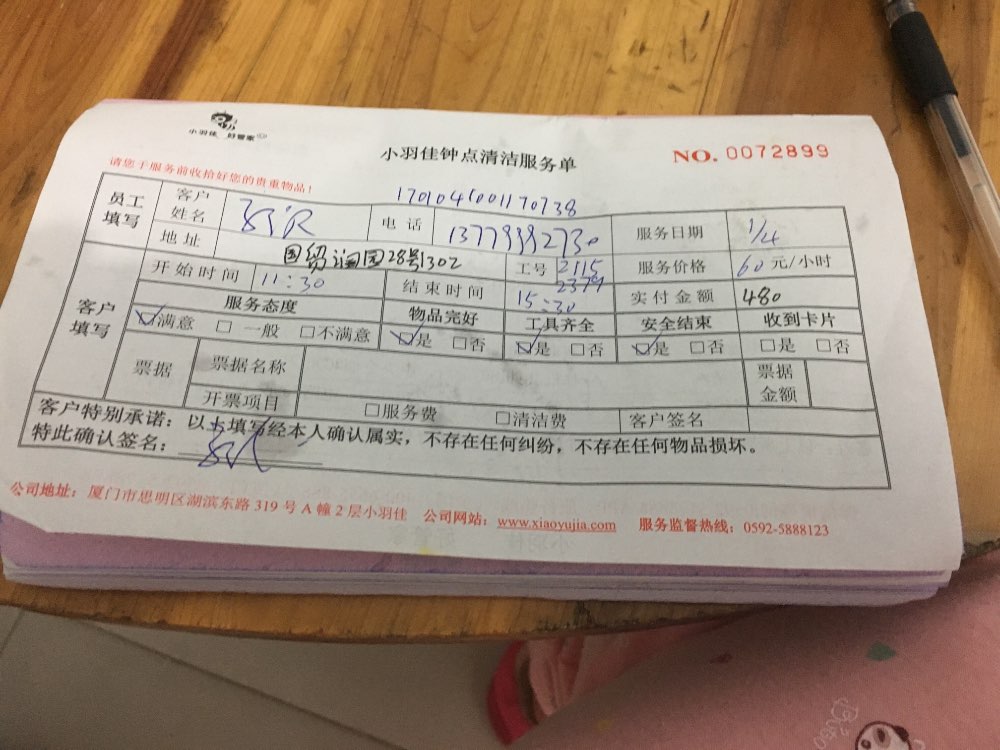 小羽佳 好管家
小羽佳钟点清洁服务单
NO. 0072899
请您于服务前收拾好您的贵重物品!
170104001170738
员工填写 客户姓名 电话 13779992730 服务日期 1/4
地址 国贸润园28号1302 工号 2115 2379 服务价格 60元/小时
客户填写 开始时间 11:30 结束时间 15:30 实付金额 480
服务态度 物品完好 工具齐全 安全结束 收到卡片
☑满意 □一般 □不满意 ☑是 □否 ☑是 □否 ☑是 □否 □是 □否
票据 票据名称 票据金额
开票项目 □服务费 □清洁费 客户签名
客户特别承诺:以上填写经本人确认属实,不存在任何纠纷,不存在任何物品损坏。
特此确认签名:
公司地址:厦门市思明区湖滨东路319号A幢2层小羽佳 公司网站:www.xiaoyujia.com 服务监督热线:0592-5888123